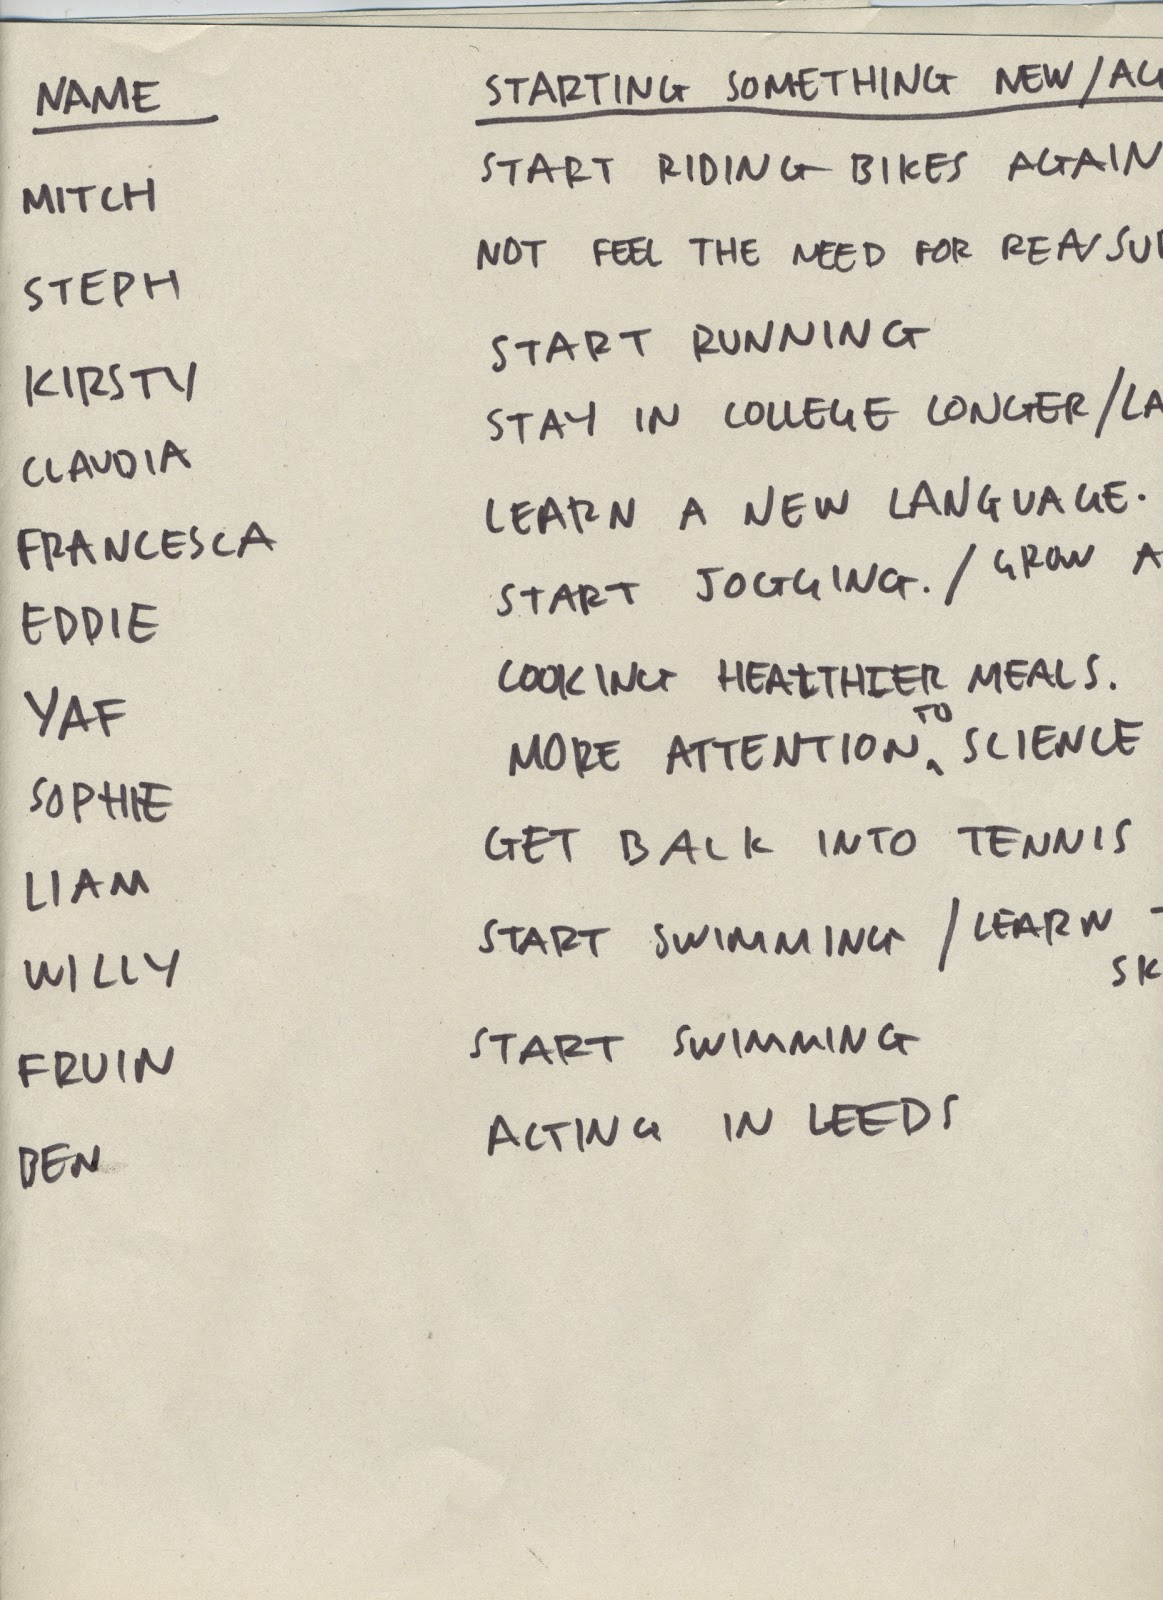 NAME STARTING SOMETHING NEW/AG
MITCH START RIDING BIKES AGAIN
STEPH NOT FEEL THE NEED FOR REASSU
KIRSTY START RUNNING
CLAUDIA STAY IN COLLEGE LONGER/LA
FRANCESCA LEARN A NEW LANGUAGE.
EDDIE START JOGGING./GROW A
YAF COOKING HEALTHIER MEALS.
SOPHIE MORE ATTENTION TO SCIENCE
LIAM GET BACK INTO TENNIS
WILLY START SWIMMING /LEARN T
SK
FRUIN START SWIMMING
BEN ACTING IN LEEDS